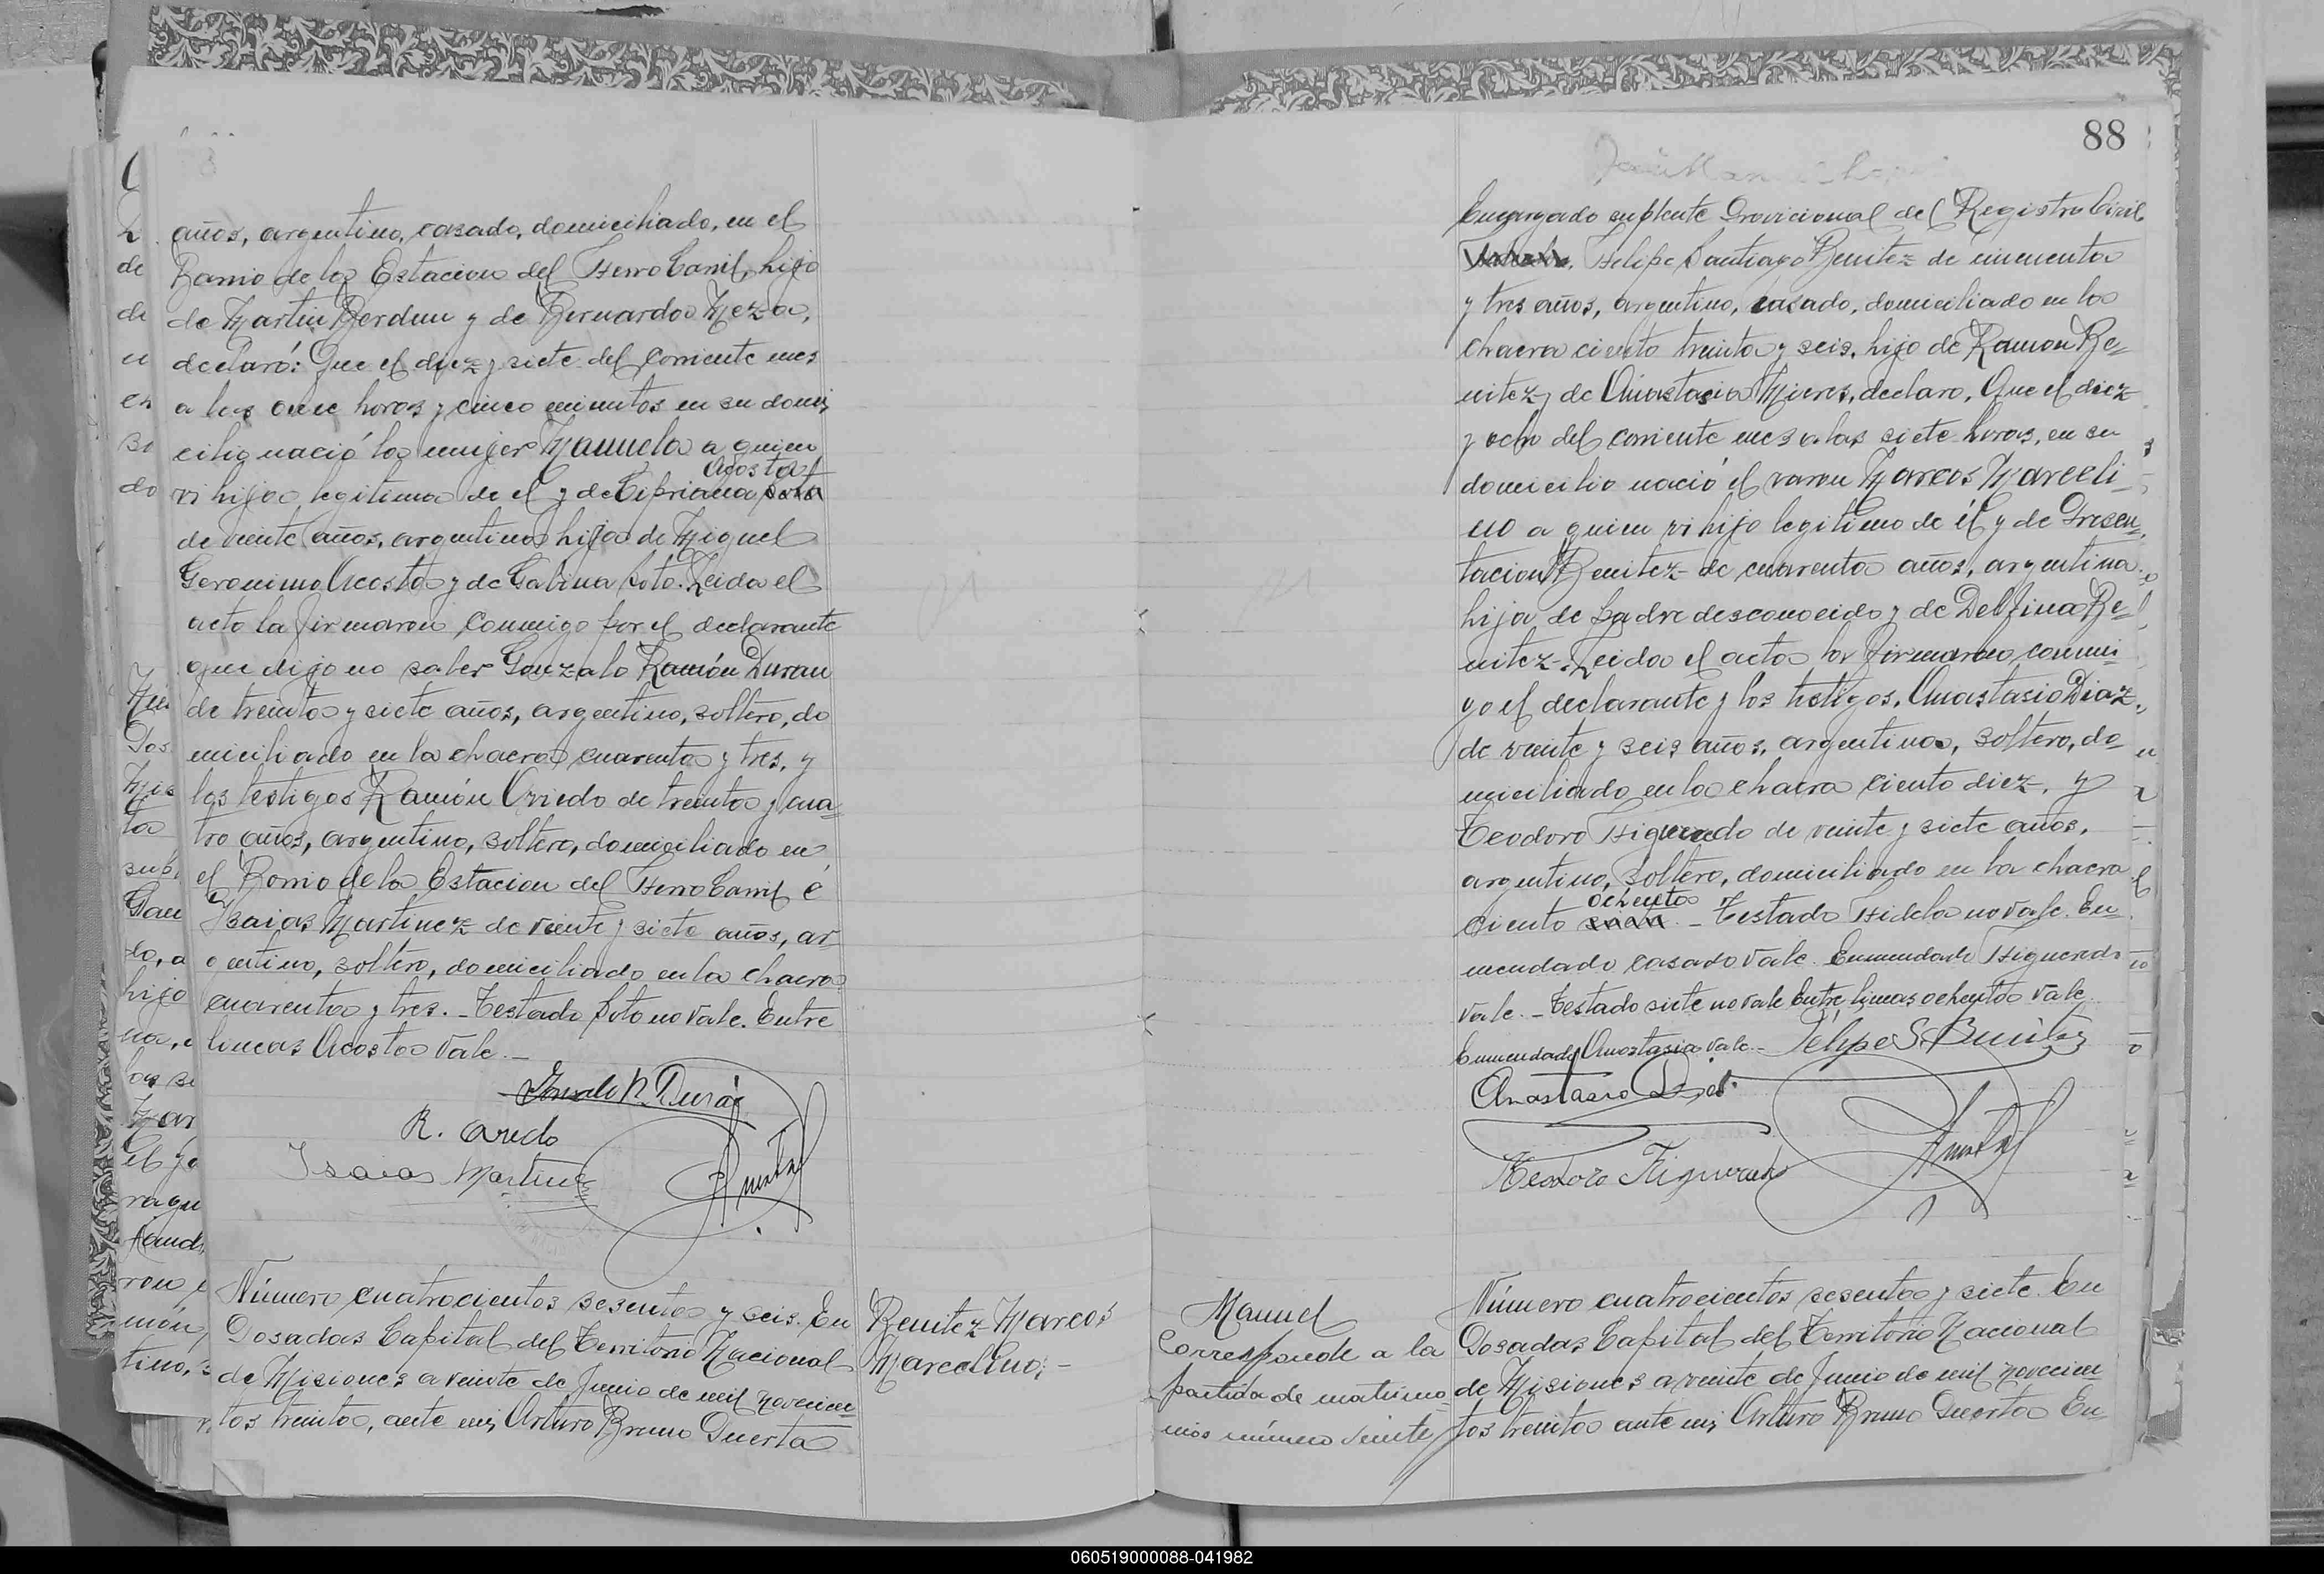 años, argentino, casado, domiciliado, en el
Barrio de la Estacion del Ferro Carril, hijo
de Martin Berdun y de Bernarda Meza,
declaró: Que el diez y siete del corriente mes
a las once horas y cinco minutos en su domi
cilio nació la mujer Manuela a quien
Acosta
vi hija legitima de el y de Cipriana soto
de veinte años, argentina hija de Miguel
Geronimo Acosta y de Gabina Soto. Leida el
acto la firmaron conmigo por el declarante
que dijo no saber Gonzalo Ramón Duran
de treinta y siete años, argentino, soltero, do
miciliado en la chacra cuarenta y tres, y
los testigos Ramón Oviedo de treinta y cua-
tro años, argentino, soltero, domiciliado en
el Barrio de la Estacion del Ferro Carril é
Isaias Martinez de veinte y siete años, ar
gentino, soltero, domiciliado en la chacra
cuarenta y tres. - Testado Soto no vale. Entre
lineas Acosta vale. -
Gonzalo R. Durán
R. Oviedo
Isaias Martinez
Número cuatrocientos sesenta y seis. En
Posadas Capital del Territorio Nacional
de Misiones a veinte de Junio de mil novecien
tos treinta, ante mi, Arturo Bruno Puerta
Benitez Marcos
Marcelino. -
88
Encargado suplente Provicional del Registro Civil
Felipe Santiago Benitez de cincuenta
y tres años, argentino, casado, domiciliado en la
chacra ciento treinta y seis, hijo de Ramon Be-
nitez y de Anastasia Mieres, declaro, Que el diez
y ocho del corriente mes a las siete horas, en su
domicilio nació el varon Marcos Marceli-
no a quien vi hijo legitimo de él y de Presen-
tacion Benitez de cuarenta años, argentina
hija de padre desconocido y de Delfina Be-
nitez. Leida el acta la firmaron conmi-
go el declarante y los testigos, Anastasio Diaz,
de veinte y seis años, argentino, soltero, do-
miciliado en la chacra ciento diez, y
Teodoro Figueredo de veinte y siete años,
argentino, soltero, domiciliado en la chacra
ochenta
ciento siete. - Testado Fidela no vale. En-
mendado casado vale. Enmendado Figueredo
vale. - Testado siete no vale Entre lineas ochenta vale.
Enmendado Anastasia vale. - Felipe S. Benitez
Anastasio Diaz
Teodoro Figueredo
Manuel
Corresponde a la
partida de matrimo-
nios número veinte
Número cuatrocientos sesenta y siete. En
Posadas Capital del Territorio Nacional
de Misiones a veinte de Junio de mil novecien
tos treinta ante mi, Arturo Bruno Puerta En-
060519000088-041982